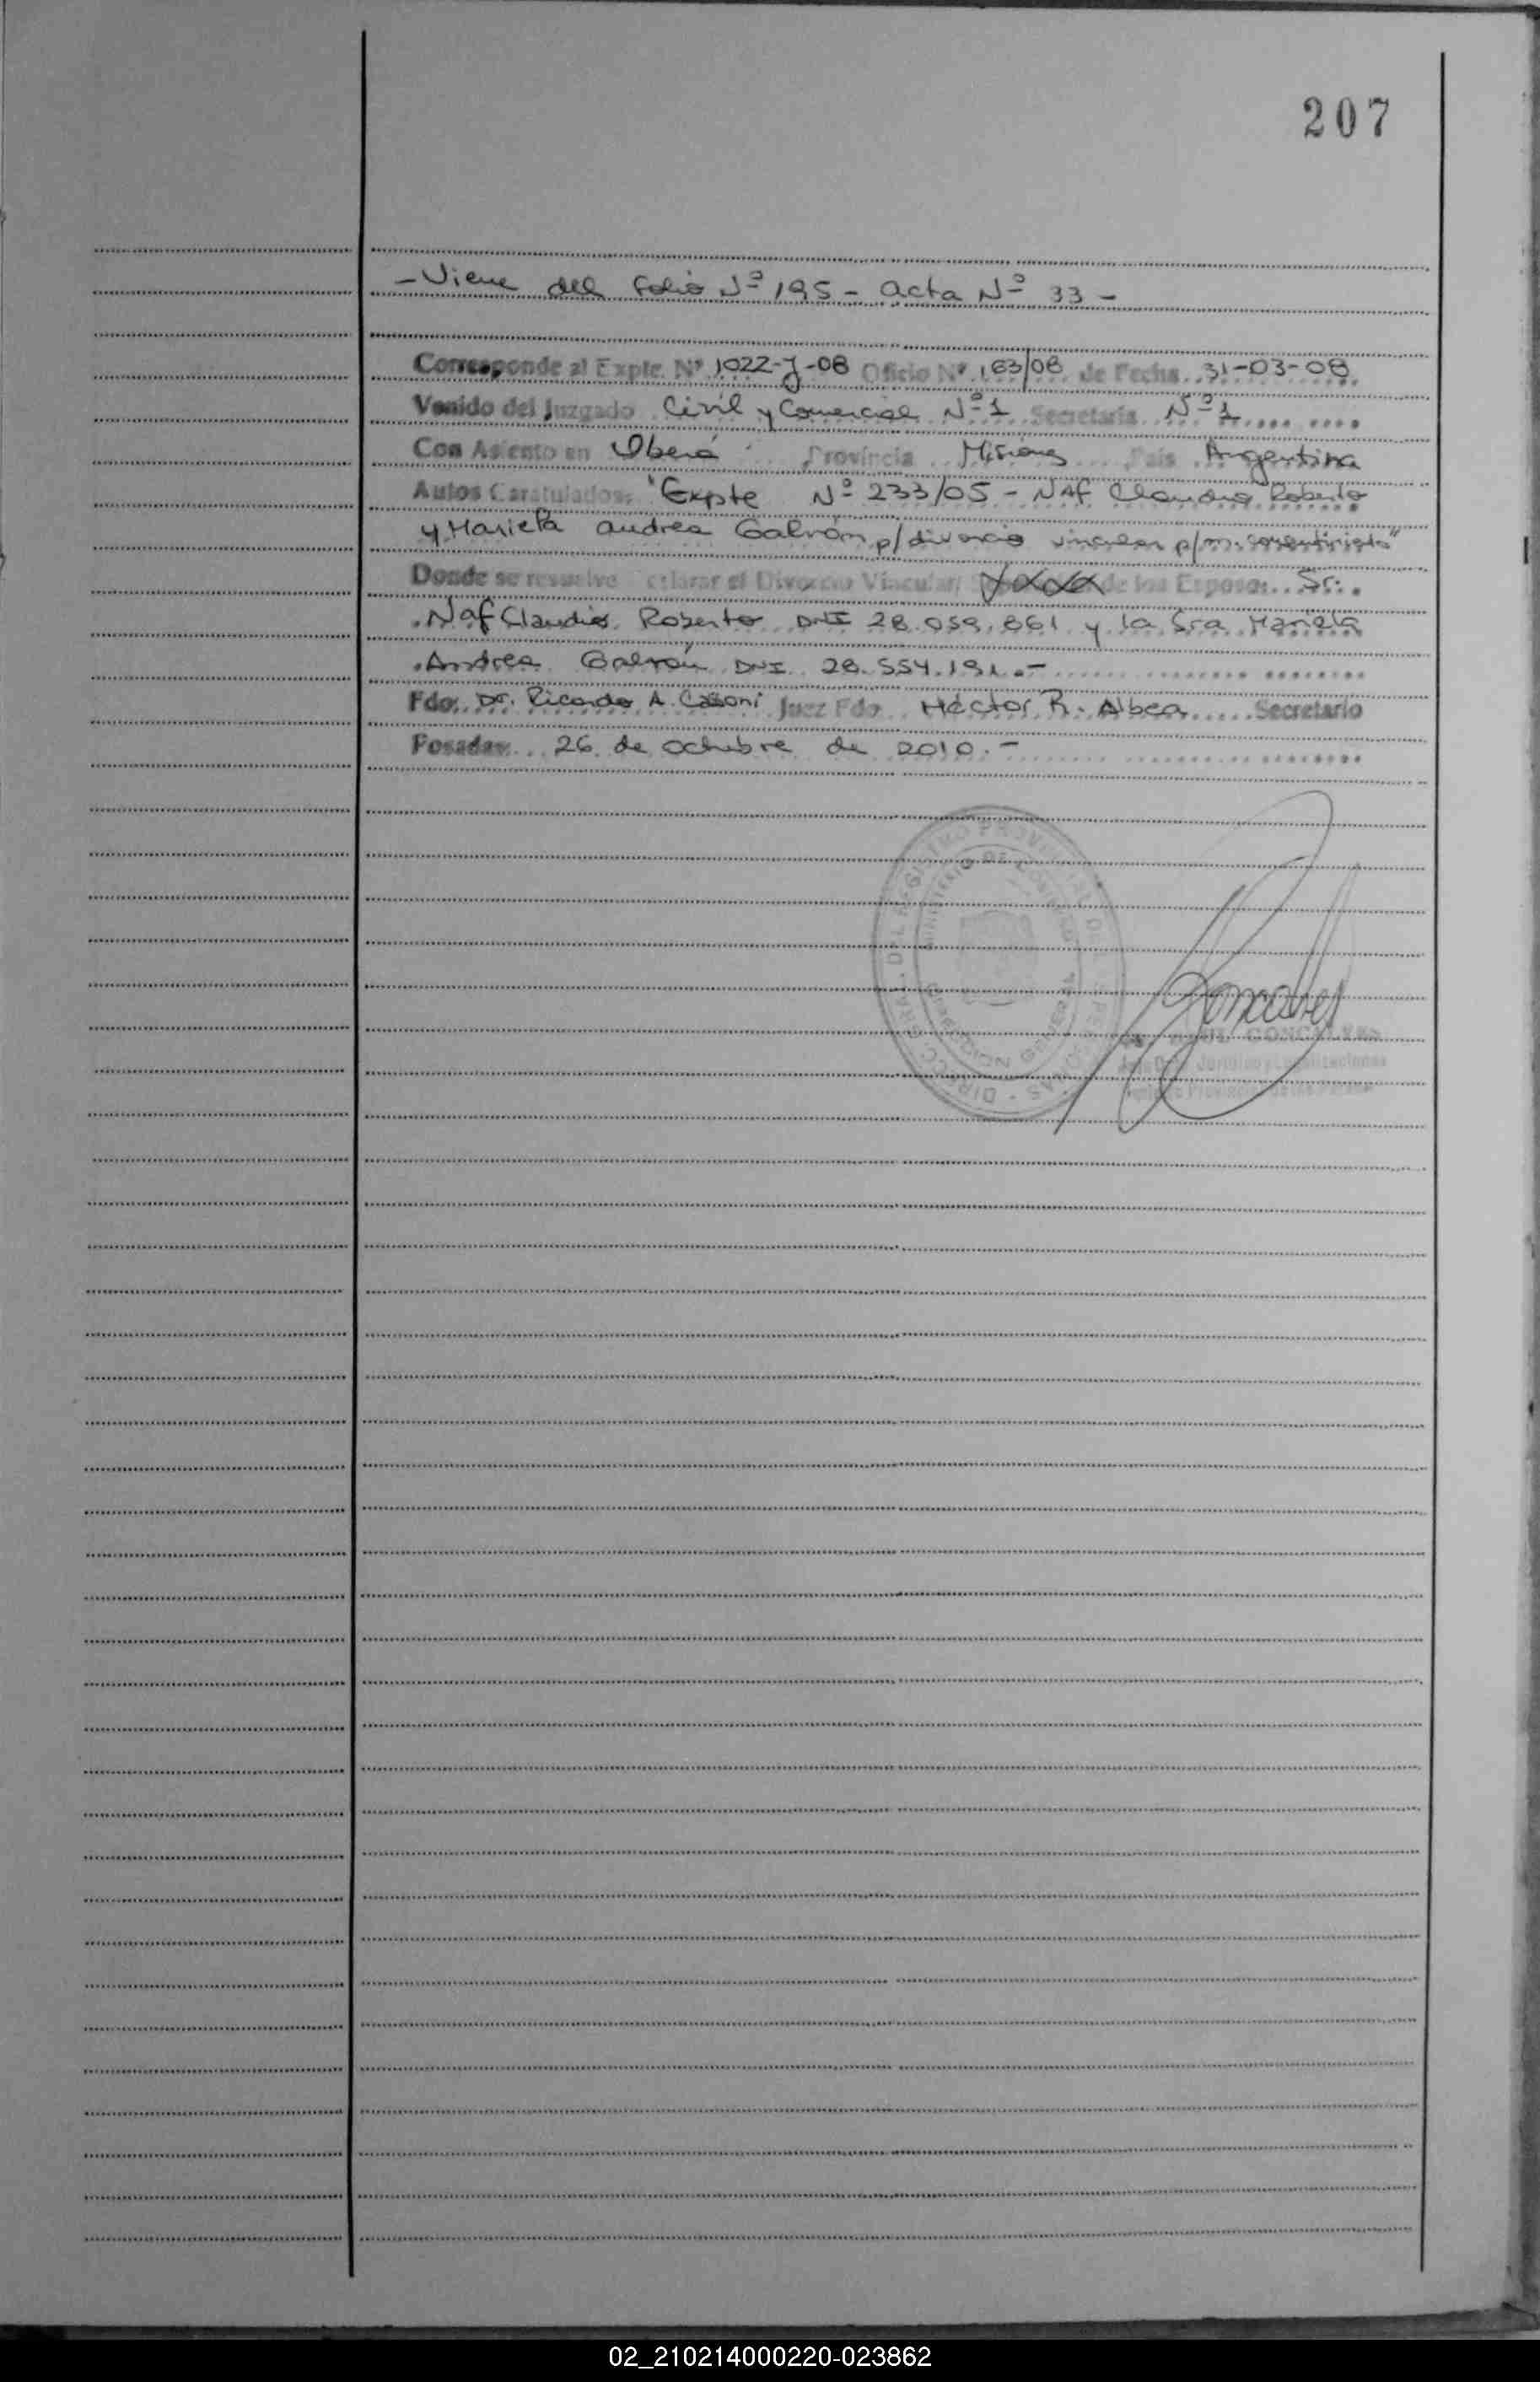 207
- Viene del Folio Nº 195 - acta Nº 33 -
Corresponde al Expte. Nº 1022-J-08 Oficio Nº 163/08 de Fecha 31-03-08
Venido del Juzgado Civil y Comercial Nº 1 Secretaría Nº 1
Con Asiento en Oberá Provincia Misiones País Argentina
Autos Caratulados: "Expte Nº 233/05 - NAF Claudio Roberto
y Mariela andrea Galván p/divorcio vincular p/m.
Donde se resuelve el Divorcio Vincular de los Esposos Sr.
Naf Claudio Roberto DNI 28.059.861 y la Sra Mariela
Andrea Galván DNI 28.554.191.-
Fdo: Dr. Ricardo A. Casoni Juez Fdo Héctor R. Albea Secretario
Posadas 26 de octubre de 2010.-
GONCALVES
02_210214000220-023862